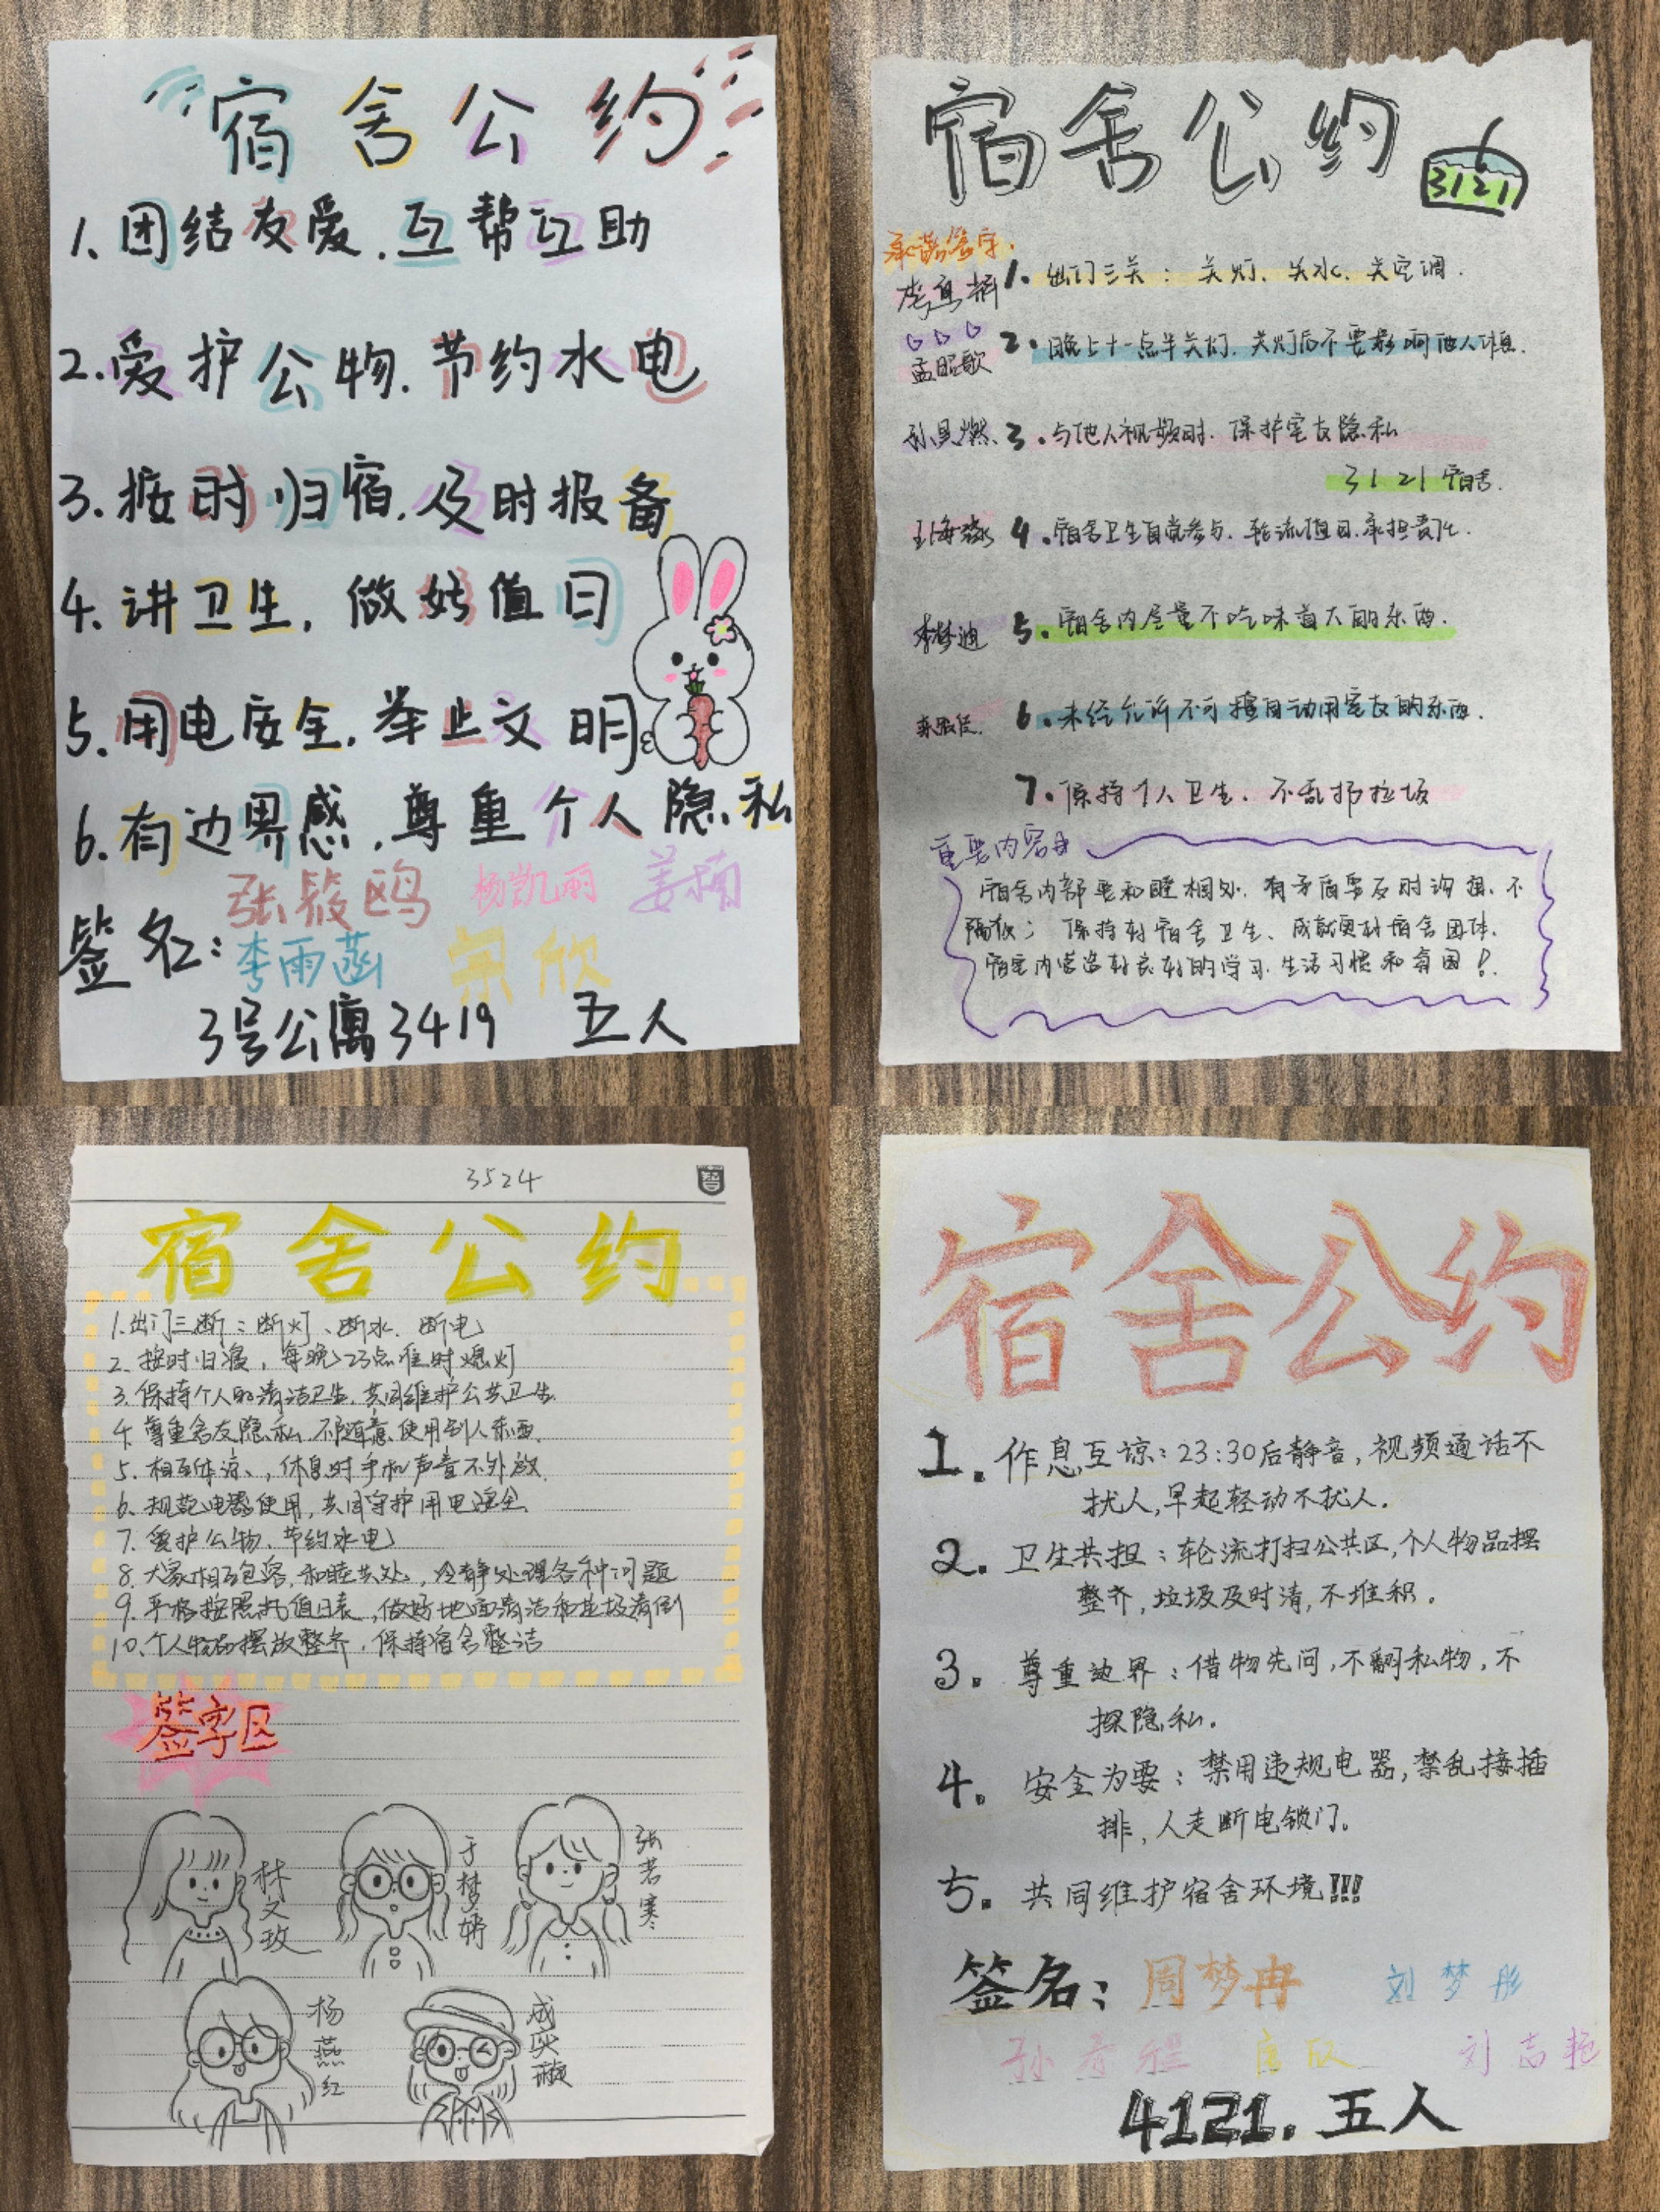 宿舍公约
1.团结友爱.互帮互助
2.爱护公物.节约水电
3.按时归宿.及时报备
4.讲卫生,做好值日
5.用电安全.举止文明
6.有边界感.尊重个人隐私
签名:
张筱鸥 杨凯丽 姜楠
李雨菡 宗欣
3号公寓3419 五人
宿舍公约 3121
承诺签字.
1.出门三关:关灯、关水、关空调.
2.晚上十一点半关灯.关灯后不要影响他人休息.
孟昭歌
3.与他人视频时.保护室友隐私
3121宿舍.
4.宿舍卫生自觉参与.轮流值日.承担责任.
李梦迪 5.宿舍内尽量不吃味道大的东西.
6.未经允许不可擅自动用室友的东西.
7.保持个人卫生、不乱扔垃圾
重要内容
宿舍内部要和睦相处.有矛盾要及时沟通.不
隔夜;保持好宿舍卫生、成就更好宿舍团体.
宿舍内营造好良好的学习.生活习惯和氛围!
3524
宿舍公约
1.出门三断:断灯、断水、断电
2.按时归寝,每晚23点准时熄灯
3.保持个人的清洁卫生.共同维护公共卫生
4.尊重舍友隐私.不随意使用别人东西.
5.相互体谅,休息时手机声音不外放.
6.规范电器使用,共同守护用电安全
7.爱护公物、节约水电
8.大家相互包容,和睦共处,冷静处理各种问题
9.严格按照扎值日表,做好地面清洁和垃圾清倒
10.个人物品摆放整齐,保持宿舍整洁
签字区
林文玫 于梦婷 张若寒
杨燕红 成奕璇
宿舍公约
1.作息互谅:23:30后静音,视频通话不
扰人,早起轻动不扰人.
2.卫生共担:轮流打扫公共区,个人物品摆
整齐,垃圾及时清,不堆积.
3.尊重边界:借物先问,不翻私物,不
探隐私.
4.安全为要:禁用违规电器,禁乱接插
排,人走断电锁门。
5.共同维护宿舍环境!!!
签名:周梦冉 刘梦彤
唐欣 刘志艳
4121.五人